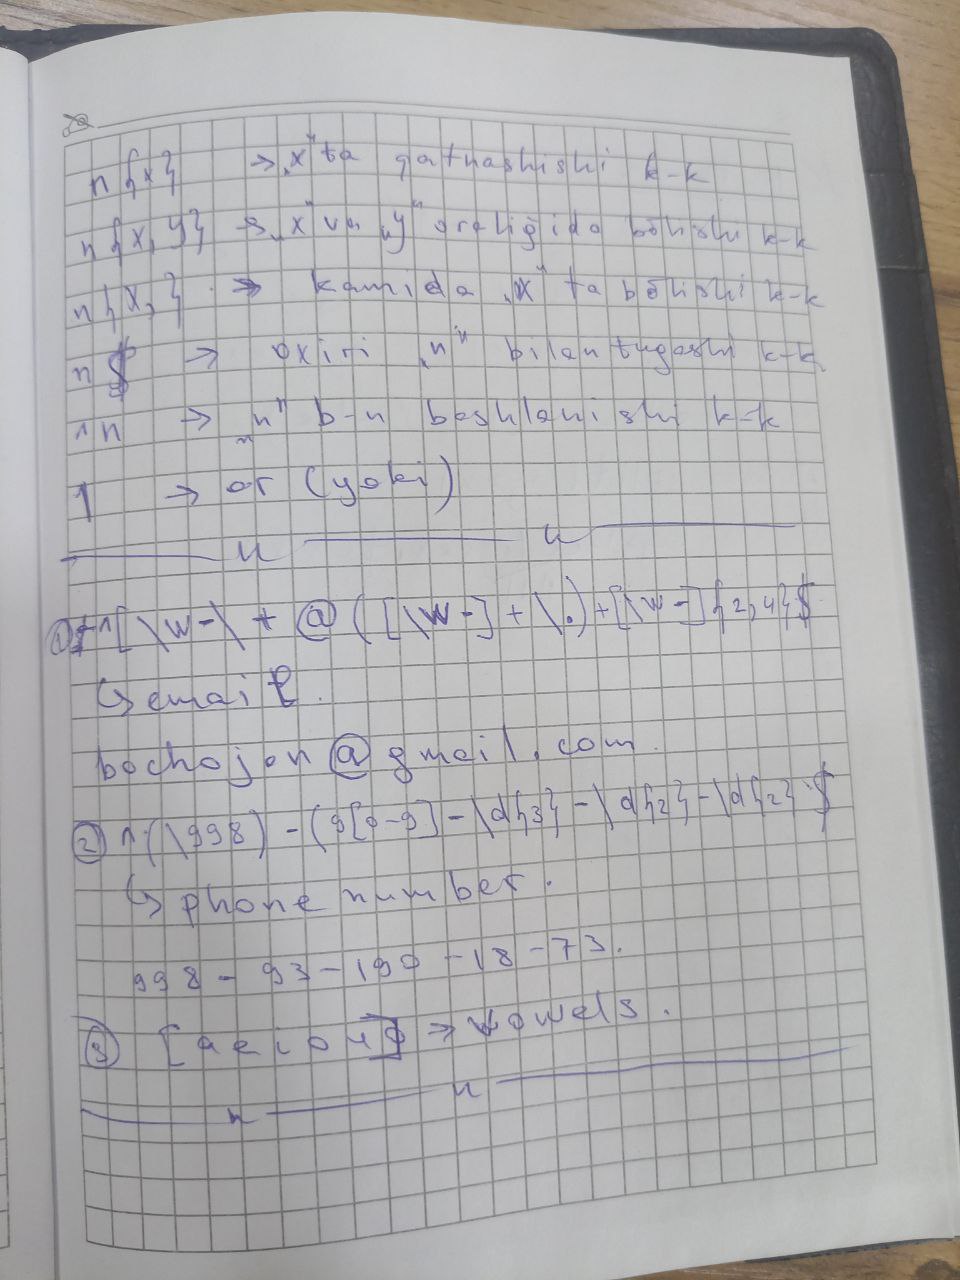 n{x} → „x" ta qatnashishi k-k
n{x, y} → „x" va „y" oralig'ida bo'lishi k-k
n{x,} → kamida „x" ta bo'lishi k-k
n$ → oxiri „n" bilan tugashi k-k
^n → „n" b-n boshlanishi k-k
| → or (yoki)
① ^[\w-\ + @ ([\w-] + \.) + [\w-]{2,4}$
↳ email.
bochojon@gmail.com.
② ^(\998) - (9[0-9] - \d{3} - \d{2} - \d{2} $
↳ phone number.
998 - 93 - 190 - 18 - 73.
③ [aeiou] → vowels.